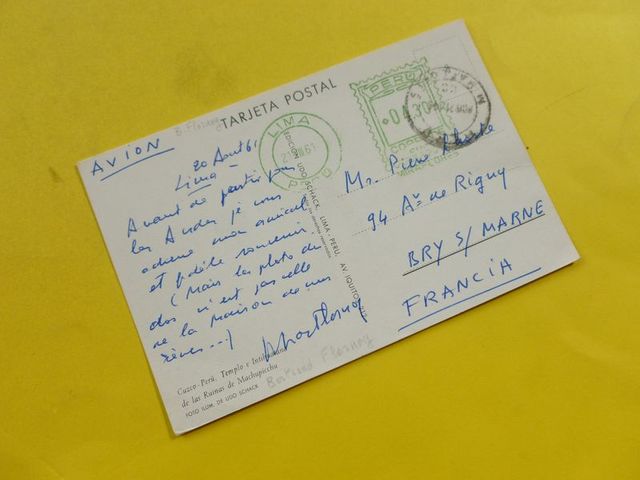 TARJETA POSTAL
B. Flornoy
AVION
20 Août 61
Lima
Avant de partir pour
les Andes je vous
adresse mon amical
et fidèle souvenir
(Mais la photo du
dos n'est pas celle
de la maison de mes
rêves...)
Bertrand Flornoy
Cuzco-Perú. Templo e Intihuatana
de las Ruinas de Machupicchu
FOTO ILUM. DE UGO SCHACK
EDICION UGO SCHACK, LIMA - PERU, AV. IQUITOS
LIMA
PERU
PERU
Mr. Pierre
94 Av. de Rigny
BRY S/ MARNE
FRANCIA